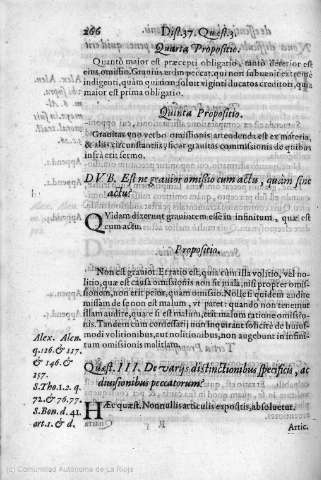 266 Dist. 37. Quest. 3.
Quarta Propositio.
Quantò maior est præcepti obligatio, tantò deterior est
eius omissio. Grauius enim peccat, qui non subuenit extremè
indigenti, quàm qui non soluit viginti ducatos creditori, quia
maior est prima obligatio.
Quinta Propositio.
Grauitas verò omissionis attendenda est ex materia,
& alijs circunstantijs, sicut grauitas commissionis de quibus
infrà erit sermo.
DVB. Est ne grauior omissio cum actu, quàm sine
actu?
QVidam dixerunt grauiorem esse in infinitum, quæ est
cum actu.
Propositio.
Non est grauior. Et ratio est, quia cùm illa volitio, vel no-
litio, quæ est causa omissionis non sit mala, nisi propter omis-
sionem, non erit peior, quàm omissio. Nolle si quidem audire
missam de se non est malum, vt patet: quando non tenemur
illam audire, quæ si est malum, est malum ratione omissio-
nis. Tandem cùm confessarij non inquirant solicitè de huius-
modi volitionibus, aut nolitionibus, non augebunt in infini-
tum omissionis malitiam.
Alex. Alen.
q. 126. & 117.
& 146. &
157.
S. Tho. 1. 2. q.
72. & 76. 77.
S. Bon. d. 41.
art. 1. & d.
Quæst. III. De varijs distinctionibus specificis, ac
diuisionibus peccatorum?
HÆc quæst. Nonnullis articulis expositis, absoluetur.
Artic.
(c) Comunidad Autónoma de La Rioja